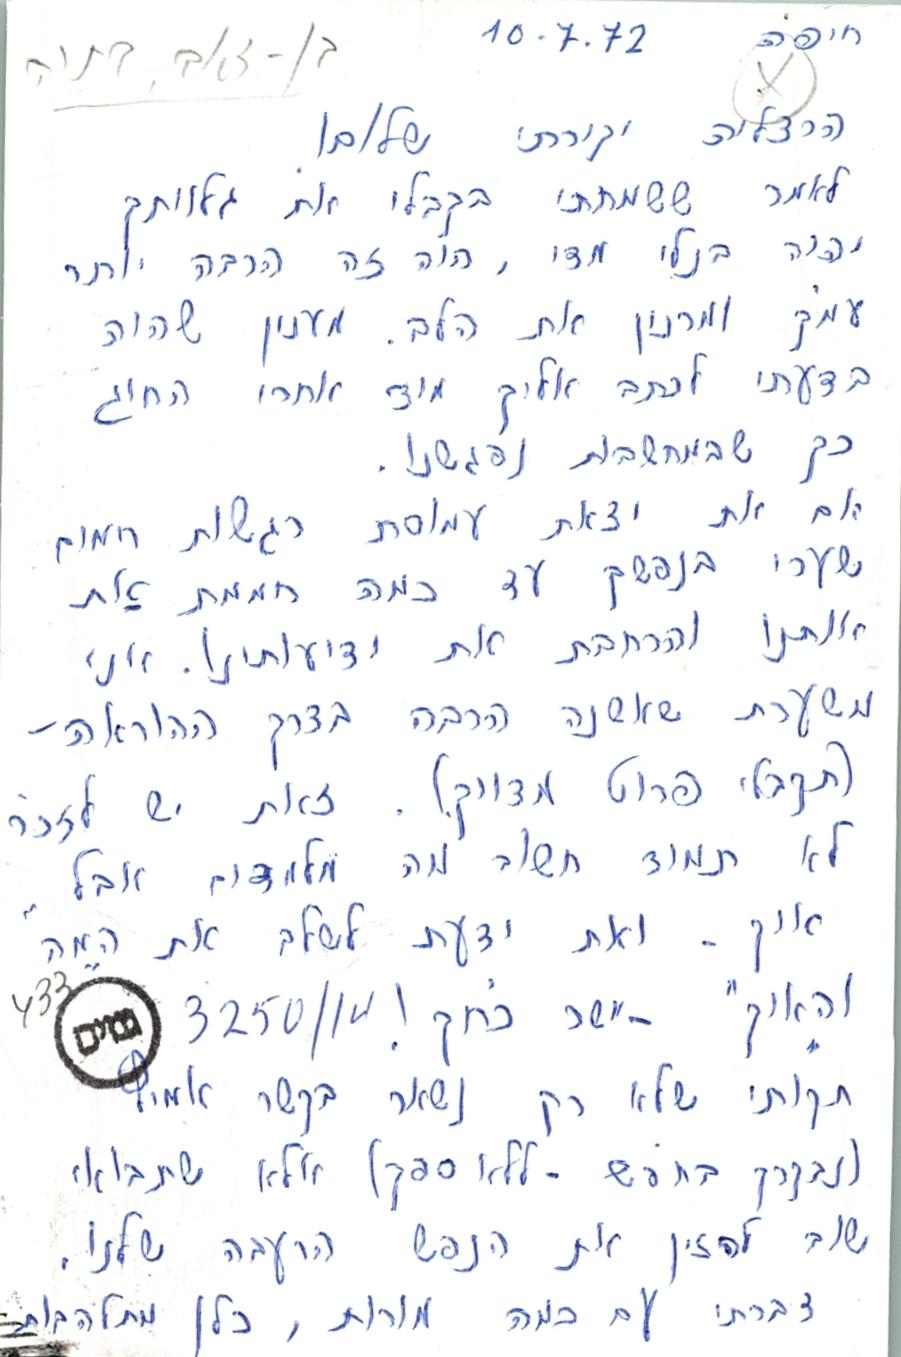 חיפה 10.7.72
בן-זאב, דתיה
הרצליה יקירתי שלום!
לאמר ששמחתי בקבלי את גלויתך
יהיה בנלי מדי, היה זה הרבה יותר
עמק ומרנין את הלב. מענין שהיה
בדעתי לכתב אליך מיד אחרי החג
כך שבמחשבות נפגשנו.
אם את יצאת עמוסת רגשות חמים
שערי בנפשך עד כמה חממת את
אותנו והרחבת את ידיעותינו. אני
משערת שאשנה הרבה בדרך ההוראה -
(תקבלי פרוט מדויק). זאת יש לזכר
לא תמיד חשוב מה מלמדים אבל
איך - ואת ידעת לשלב את ה"מה"
וה"איך" - יישר כחך! 3250/מן
433
תקותי שלא רק נשאר בקשר אמיץ
(נבקרך בחפש - ללא ספק) אלא שתבואי
שוב להזין את הנפש הרעבה שלנו.
דברתי עם כמה מורות, כלן מתלהבות